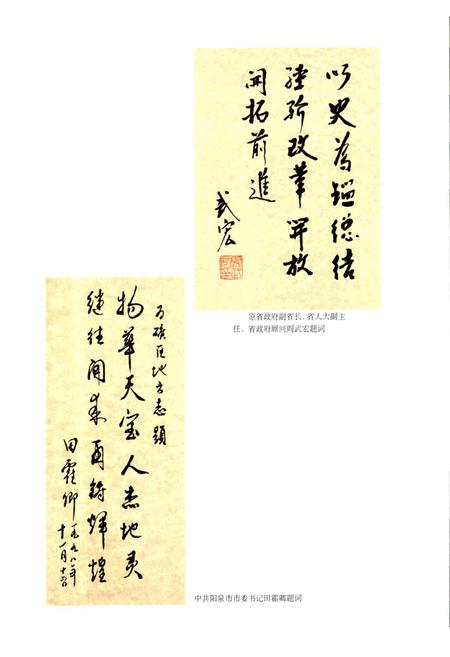 以史為鑑總結
經驗改革開放
開拓前進
武宏
原省政府副省长、省人大副主
任、省政府顾问阎武宏题词
为矿区地方志题
物华天宝人杰地灵
继往开来再铸辉煌
田霍卿
一九九八年
十一月十六日
中共阳泉市市委书记田霍卿题词